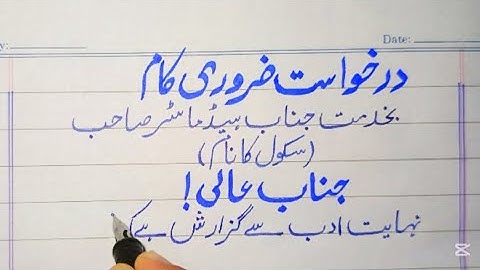 Date:
درخواست ضروری کام
بخدمت جناب ہیڈماسٹر صاحب
(سکول کا نام)
جناب عالی!
نہایت ادب سے گزارش ہے کہ